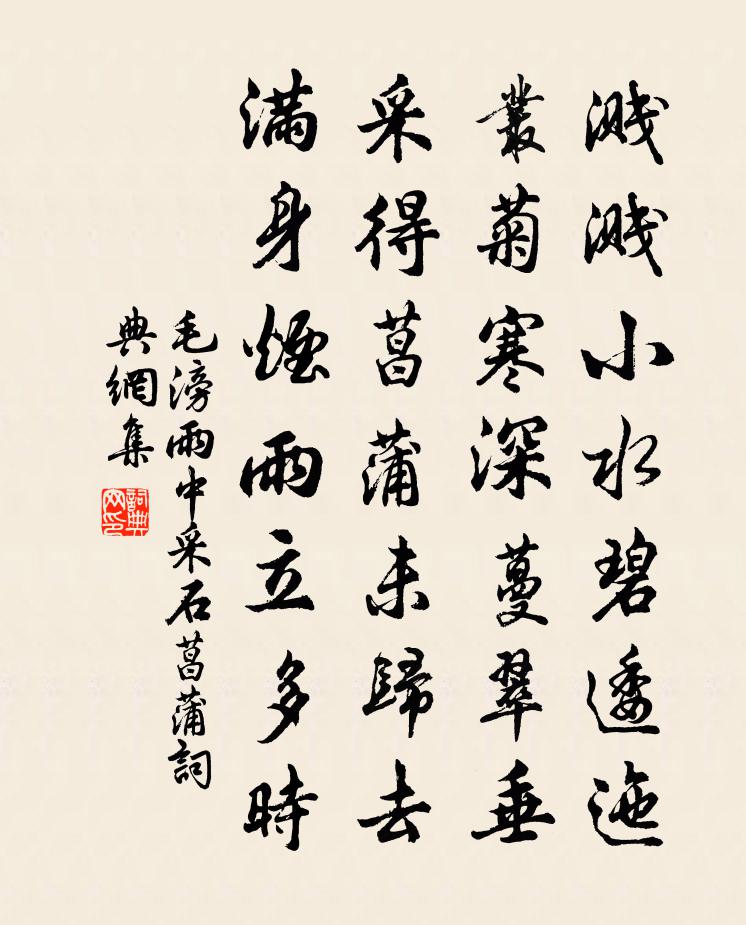 濺濺小水碧逶迤
叢菊寒深蔓翠垂
采得菖蒲未歸去
滿身煙雨立多時
毛滂雨中采石菖蒲詞
典網集
詞典网印